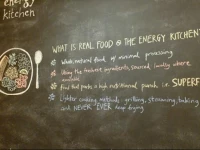 energy
kitchen
WHAT IS REAL FOOD @ THE ENERGY KITCHEN
Whole, natural food w/ minimal processing
Using the freshest ingredients, sourced locally where
available
Food that packs a high nutritional punch, i.e. SUPERF
Lighter cooking methods: grilling, steaming, baking
and NEVER EVER deep frying